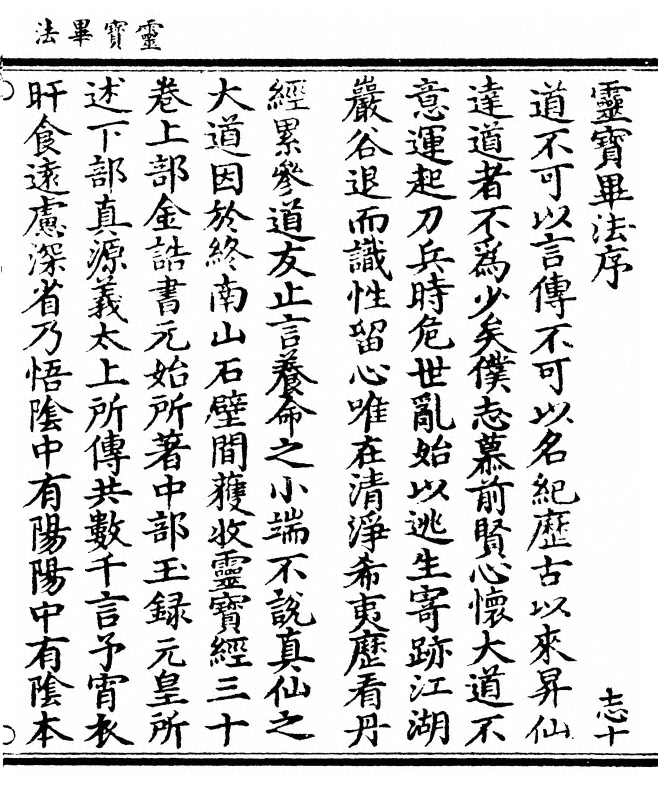 靈寶畢法
靈寶畢法序 志十
道不可以言傳不可以名紀歷古以來昇仙
達道者不為少矣僕志慕前賢心懷大道不
意運起刀兵時危世亂始以逃生寄跡江湖
巖谷退而識性留心唯在清淨希夷歷看丹
經累參道友止言養命之小端不說真仙之
大道因於終南山石壁間蒦收靈寶經三十
卷上部金誥書元始所著中部玉録元皇所
述下部真源義太上所傳共數千言予宵衣
旰食遠慮深省乃悟陰中有陽陽中有陰本